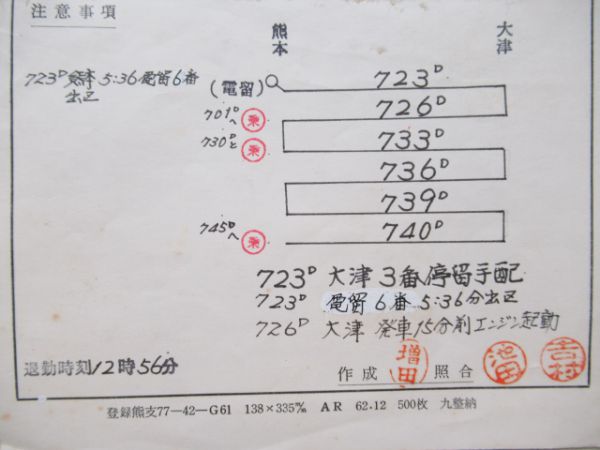 注意事項
熊本 大津
723D 熊本 5:36 電留6番
出区
(電留) 723D
701Dへ 乗 726D
730Dと 乗 733D
736D
739D
745Dへ 乗 740D
723D 大津 3番停留手配
723D 電留6番 5:36分出区
726D 大津 発車15分前エンジン起動
退勤時刻12時56分
作成 増田 照合 池田 吉村
登録熊支77-42-G61 138×335㎜ AR 62.12 500枚 九整納